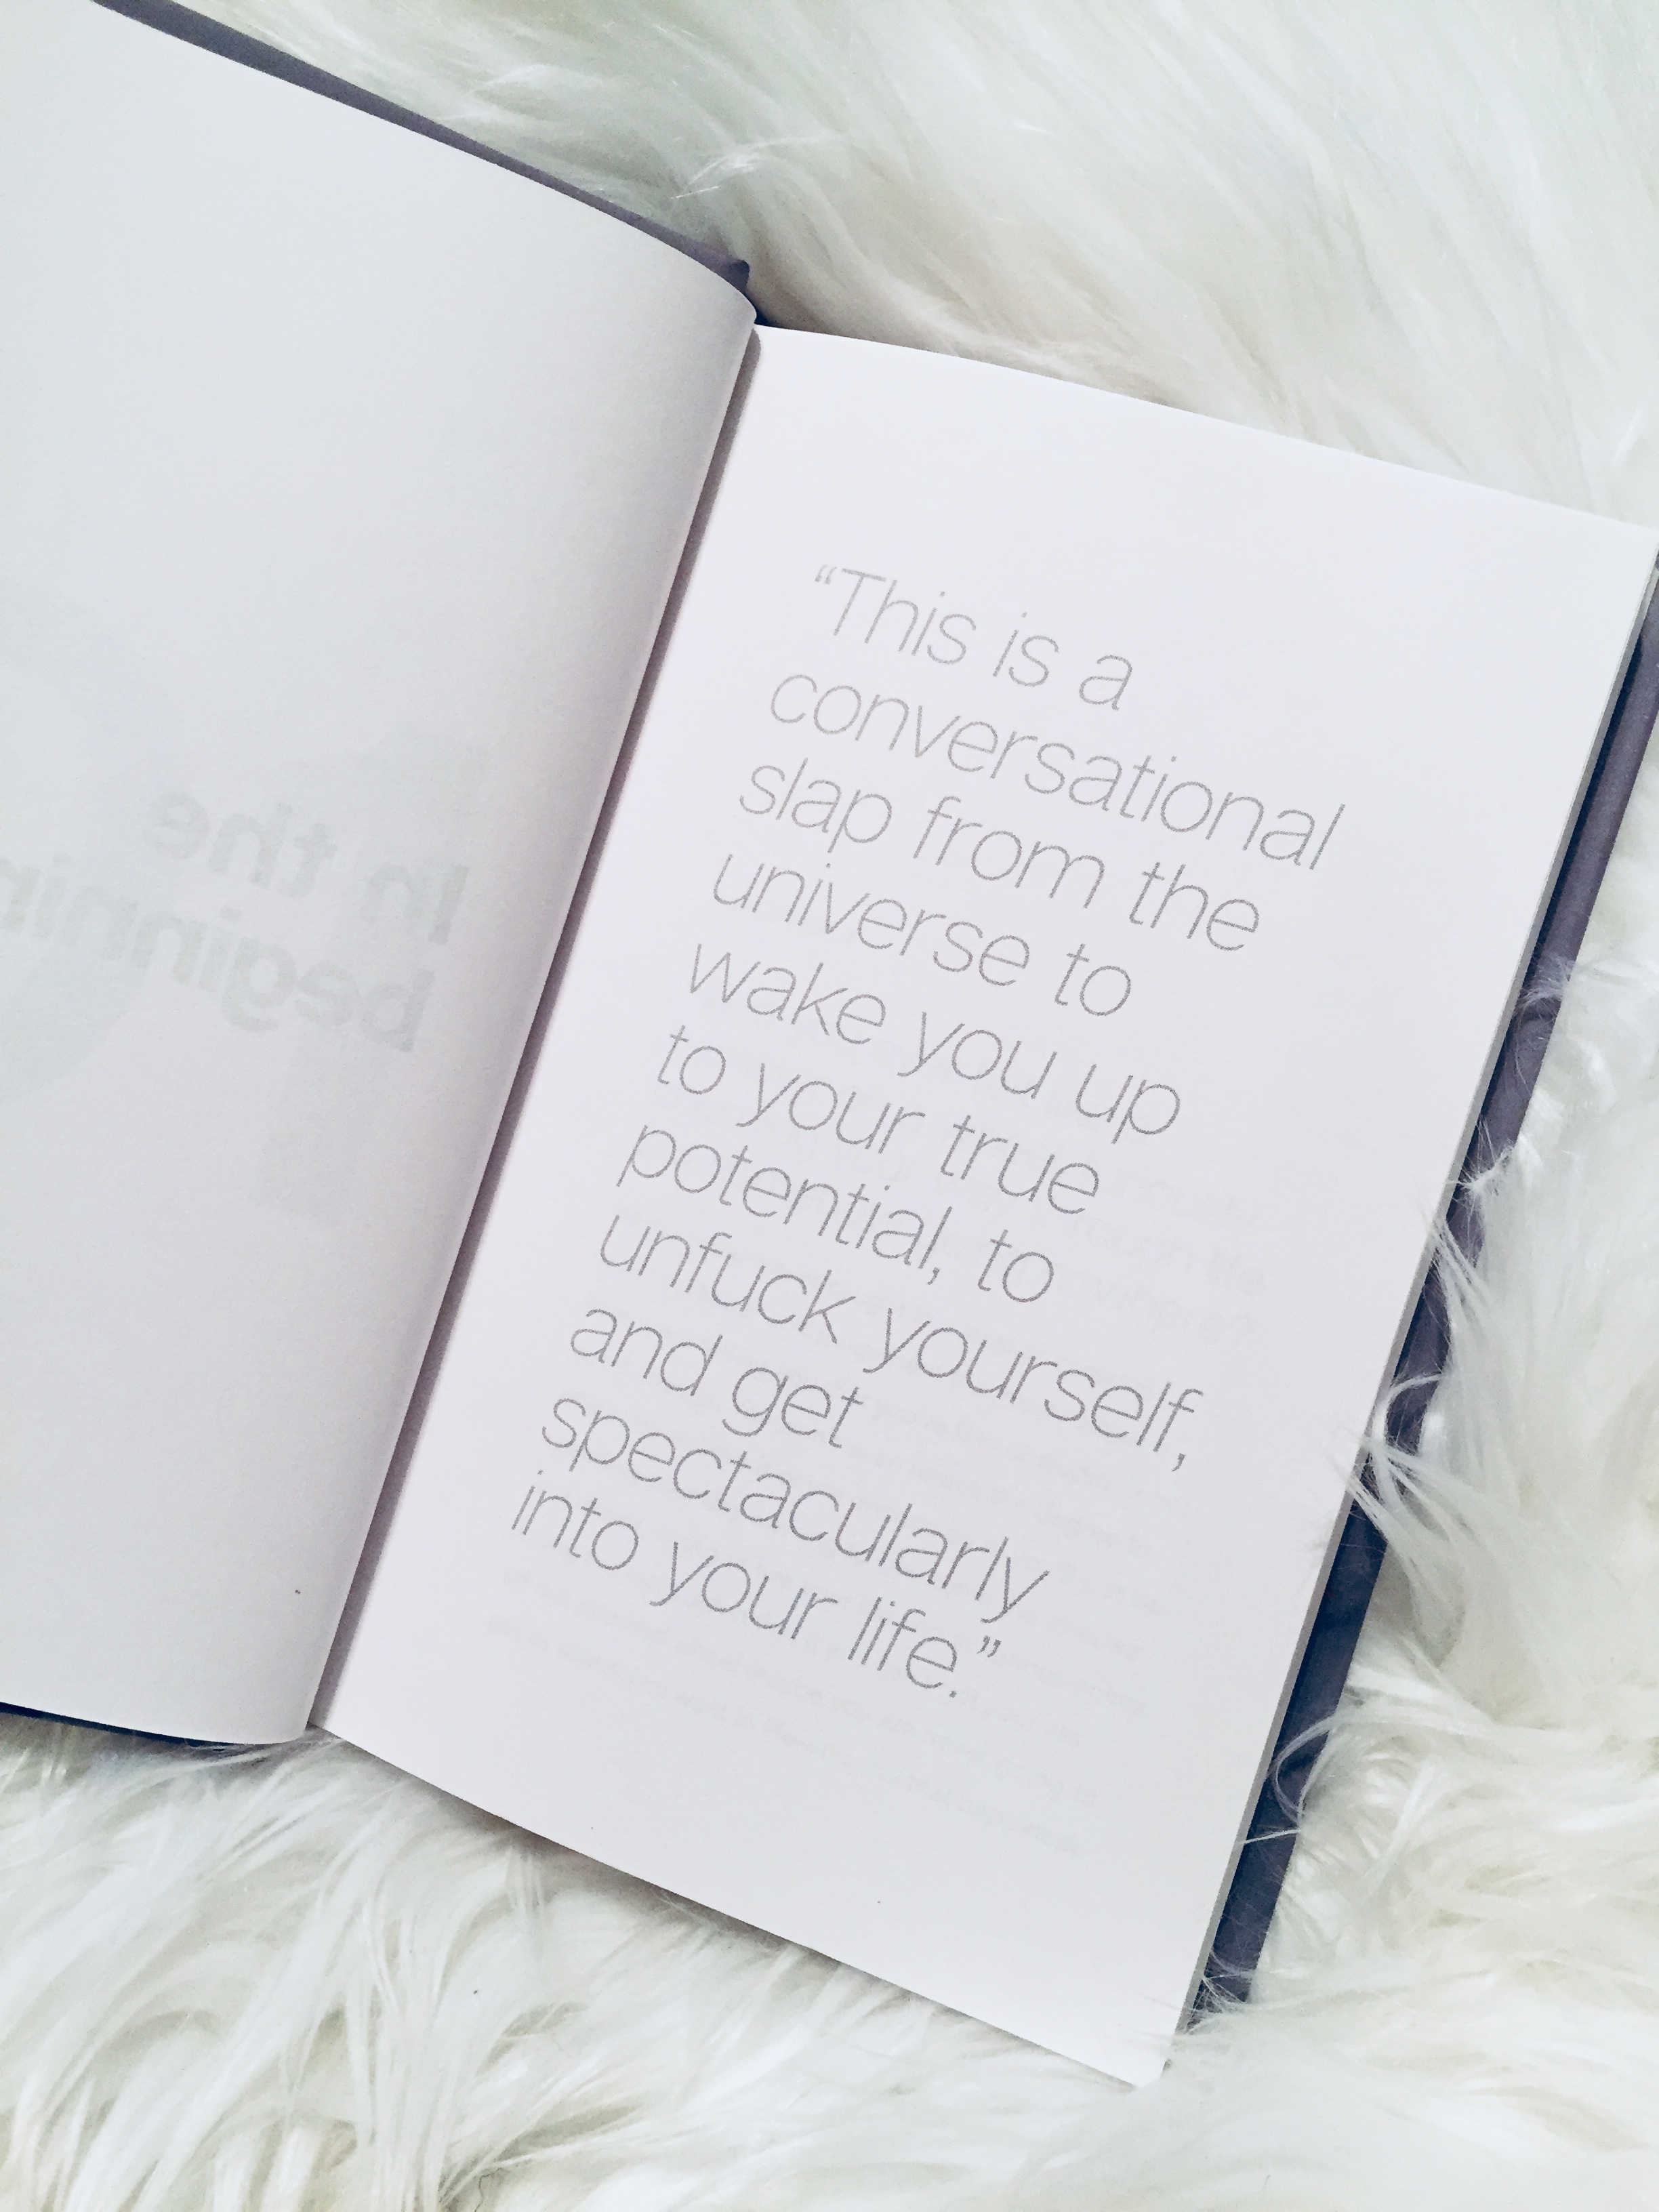 In the
“This is a
conversational
slap from the
universe to
wake you up
to your true
potential, to
unfuck yourself,
and get
spectacularly
into your life.”